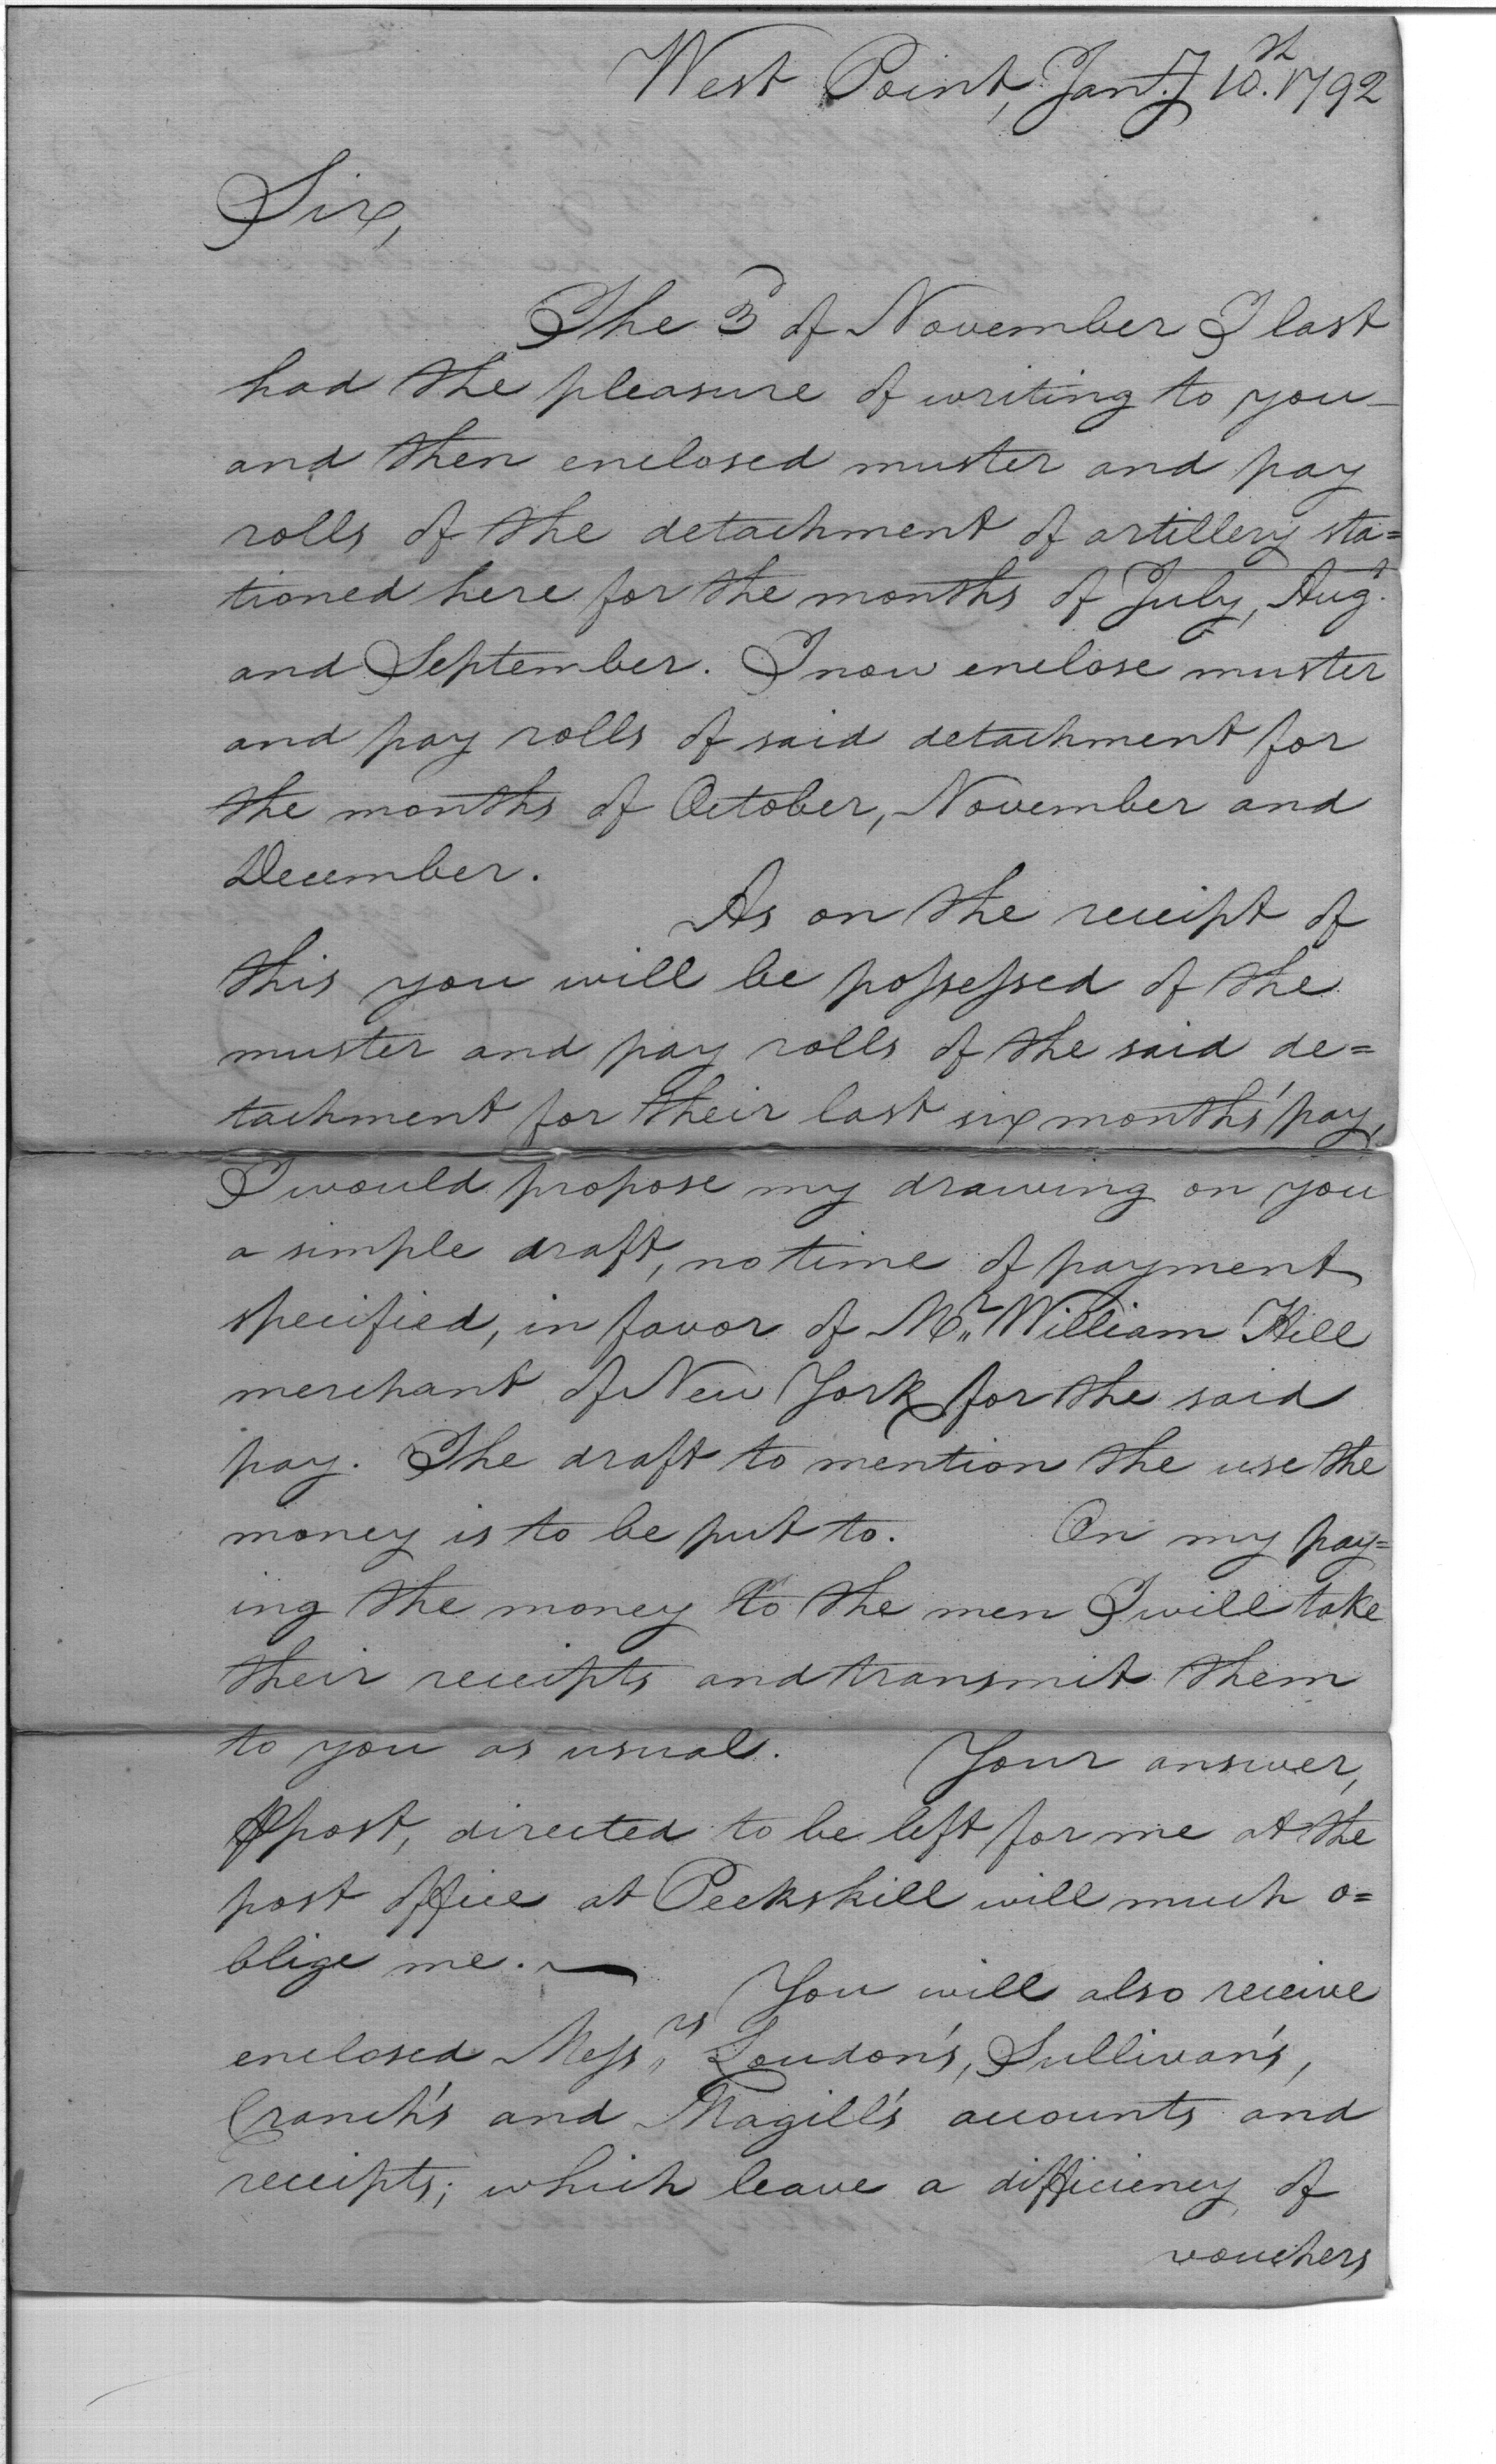 West Point, Jan.y 10.th 1792
Sir,
The 3d of November I last
had the pleasure of writing to you—
and then enclosed muster and pay
rolls of the detachment of artillery sta=
tioned here for the months of July, Augt.
and September. I now enclose muster
and pay rolls of said detachment for
the months of October, November and
December.
As on the receipt of
this you will be possessed of the
muster and pay rolls of the said de=
tachment for their last six months' pay,
I would propose my drawing on you
a simple draft, no time of payment
specified, in favor of Mr. William Hill
merchant of New York for the said
pay. The draft to mention the use the
money is to be put to. On my pay=
ing the money to the men I will take
their receipts and transmit them
to you as usual. Your answer,
⅌ post, directed to be left for me at the
post office at Peekskill will much o=
blige me.—
You will also receive
enclosed Messrs. Loudon's, Sullivan's,
Cranch's and Magill's accounts and
receipts; which leave a difficiency of
vouchers